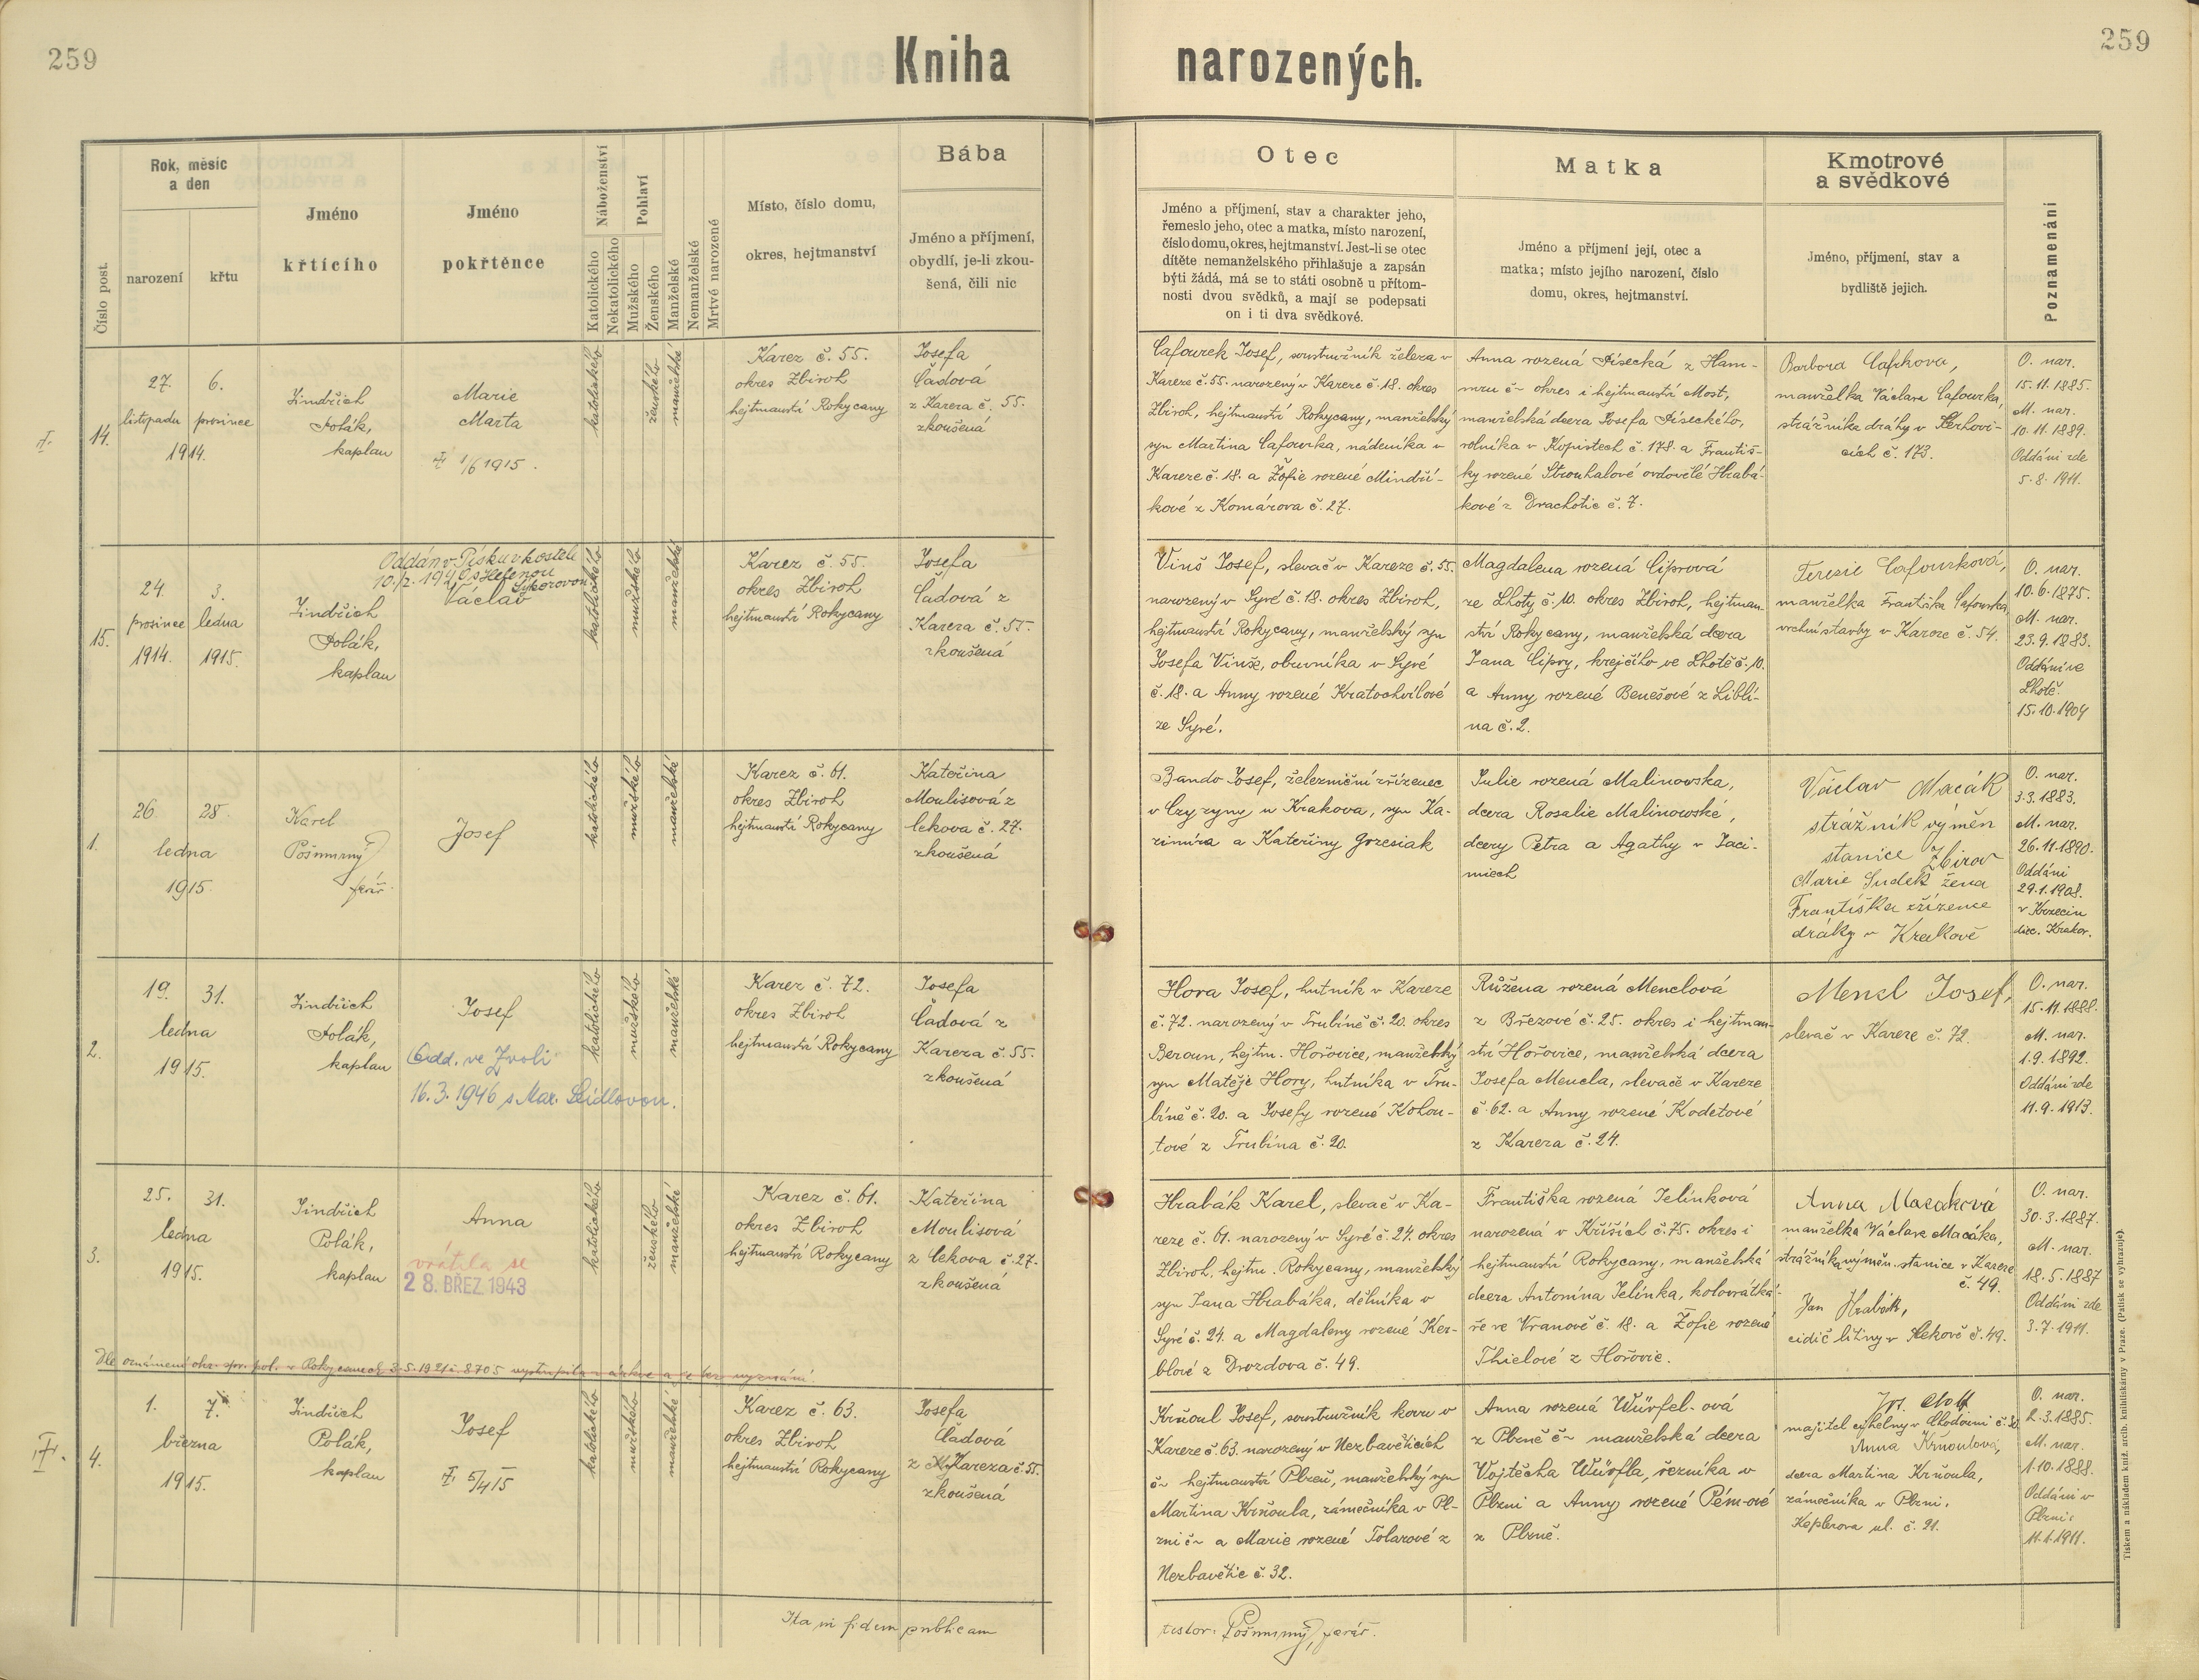 259
259
Kniha narozených.
Číslo post.
Rok, měsíc
a den
narození
křtu
Jméno
křtícího
Jméno
pokřtěnce
Náboženství
Katolického
Nekatolického
Pohlaví
Mužského
Ženského
Manželské
Nemanželské
Mrtvě narozené
Místo, číslo domu,
okres, hejtmanství
Bába
Jméno a příjmení,
obydlí, je-li zkou-
šená, čili nic
Otec
Jméno a příjmení, stav a charakter jeho,
řemeslo jeho, otec a matka, místo narození,
číslo domu, okres, hejtmanství. Jest-li se otec
dítěte nemanželského přihlašuje a zapsán
býti žádá, má se to státi osobně u přítom-
nosti dvou svědků, a mají se podepsati
on i ti dva svědkové.
Matka
Jméno a příjmení její, otec a
matka; místo jejího narození, číslo
domu, okres, hejtmanství.
Kmotrové
a svědkové
Jméno, příjmení, stav a
bydliště jejich.
Poznamenání
14.
27. 6.
listopadu prosince
1914.
Jindřich
Polák,
kaplan
Marie
Marta
1/6 1915.
katolického
ženského
manželské
Karez č. 55.
okres Zbiroh
hejtmanství Rokycany
Josefa
Čadová
z Kareza č. 55.
zkoušená
Cafourek Josef, soustružník železa v
Kareze č. 55. narozený v Kareze č. 18. okres
Zbiroh, hejtmanství Rokycany, manželský
syn Martina Cafourka, nádeníka v
Kareze č. 18. a Žofie rozené Mindři-
kové z Komárova č. 27.
Anna rozená Písecká z Ham-
mru č- okres i hejtmanství Most,
manželská dcera Josefa Píseckého,
rolníka v Kopistech č. 178. a Františ-
ky rozené Strouhalové ovdovělé Hrabá-
kové z Drachotic č. 7.
manželka Václava Cafourka,
strážníka dráhy v
cích č. 173.
O. nar.
15.11.1885.
M. nar.
10.11.1889.
Oddáni zde
5.8.1911.
15.
24. 3.
prosince ledna
1914. 1915.
Jindřich
Polák,
kaplan
Oddán v Písku v kostele
s Helenou
Sýkorovou
Václav
katolického
mužského
manželské
Karez č. 55
okres Zbiroh
hejtmanství Rokycany
Josefa
Čadová z
Kareza č. 55.
zkoušená
Vinš Josef, slevač v Kareze č. 55.
narozený v Syré č. 18. okres Zbiroh,
hejtmanství Rokycany, manželský syn
Josefa Vinše, obuvníka v Syré
č. 18. a Anny rozené Kratochvílové
ze Syré.
Magdalena rozená Ciprová
ze Lhoty č. 10. okres Zbiroh, hejtman-
ství Rokycany, manželská dcera
Jana Cipry, krejčího ve Lhotě č. 10.
a Anny rozené Benešové z Liblí-
na č. 2.
Terezie Cafourková,
manželka Františka Cafourka,
vrchní stavby v Kareze č. 54.
O. nar.
10.6.1875.
M. nar.
23.9.1883.
Oddáni ve
Lhotě.
15.10.1904
1.
26. 28.
ledna
1915.
Karel
Pošmurný
farář.
Josef
katolického
mužského
manželské
Karez č. 61.
okres Zbiroh
hejtmanství Rokycany
Kateřina
Moulisová z
Cekova č. 27.
zkoušená
Bando Josef, železniční zřízenec
v Czyzyny u Krakova, syn Ka-
zimíra a Kateřiny Grzesiak
Julie rozená Malinowska,
dcera Rosalie Malinowské,
dcery Petra a Agathy v Jaci-
miech
Václav Macák
strážník výměn
stanice Zbirov
Marie Sudek žena
Františka zřízence
dráhy v Krakově
O. nar.
3.3.1883.
M. nar.
26.11.1890.
Oddáni
29.1.1908.
v Krzecin
diec. Krakov.
2.
19. 31.
ledna
1915.
Jindřich
Polák,
kaplan
Josef
Odd. ve Zvoli
16.3.1946 s Mar. Seidlovou.
katolického
mužského
manželské
Karez č. 72.
okres Zbiroh
hejtmanství Rokycany
Josefa
Čadová z
Kareza č. 55.
zkoušená
Hora Josef, hutník v Kareze
č. 72. narozený v Trubíně č. 20. okres
Beroun, hejtm. Hořovice, manželský
syn Matěje Hory, hutníka v Tru-
bíně č. 20. a Josefy rozené Kohou-
tové z Trubína č. 20.
Růžena rozená Menclová
z Březové č. 25. okres i hejtman-
ství Hořovice, manželská dcera
Josefa Mencla, slevače v Kareze
č. 62. a Anny rozené Kodetové
z Kareza č. 24.
Mencl Josef,
slevač v Kareze č. 72.
O. nar.
15.11.1888.
M. nar.
1.9.1892.
Oddáni zde
11.9.1913.
3.
25. 31.
ledna
1915.
Jindřich
Polák,
kaplan
Anna
vrátila se
28. BŘEZ. 1943
katolického
ženského
manželské
Karez č. 61.
okres Zbiroh
hejtmanství Rokycany
Kateřina
Moulisová
z Cekova č. 27.
zkoušená
Hrabák Karel, slevač v Ka-
reze č. 61. narozený v Syré č. 24. okres
Zbiroh, hejtm. Rokycany, manželský
syn Jana Hrabáka, dělníka v
Syré č. 24. a Magdaleny rozené Ker-
blové z Drozdova č. 49.
Františka rozená Jelínková
narozená v Kříších č. 75. okres i
hejtmanství Rokycany, manželská
dcera Antonína Jelínka, kolovrátká-
ře ve Vranově č. 18. a Žofie rozené
Thielové z Hořovic.
Anna Macáková
manželka Václava Macáka,
strážníka výměn. stanice v Kareze
č. 49.
Jan Hrabák,
cidič litiny v č. 49.
O. nar.
30.3.1887.
M. nar.
18.5.1887
Oddáni zde
3.7.1911.
Dle oznámení okr. spr. pol. v Rokycanech 3.5.1921 č. 8705 vystoupila z církve a je bez vyznání.
4.
1. 7.
března
1915.
Jindřich
Polák,
kaplan
Josef
5/4 15
katolického
mužského
manželské
Karez č. 63.
okres Zbiroh
hejtmanství Rokycany
Josefa
Čadová
z Kareza č. 55.
zkoušená
Krňoul Josef, soustružník kovu v
Kareze č. 63. narozený v Nezbavěticích
č- hejtmanství Plzeň, manželský syn
Martina Krňoula, zámečníka v Pl-
zni č- a Marie rozené Tolarové z
Nezbavětic č. 32.
Anna rozená Würfel-ová
z Plzně č- manželská dcera
Vojtěcha Würfla, řezníka v
Plzni a Anny rozené Pém-ové
z Plzně.
majitel cihelny v
Anna Krňoulová,
dcera Martina Krňoula,
zámečníka v Plzni,
Keplerova ul. č. 21.
O. nar.
2.3.1885.
M. nar.
1.10.1888.
Oddáni v
Plzni
11.1.1911.
Ita in fidem publicam
testor: Pošmurný, farář.
Tiskem a nákladem kníž. arcib. knihtiskárny v Praze. (Patisk se vyhrazuje).